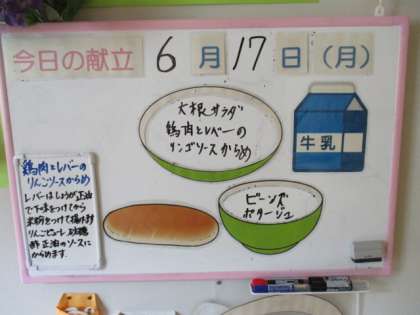 今日の献立 6月17日(月)
大根サラダ
鶏肉とレバーの
リンゴソースからめ
牛乳
ビーンズ
ポタージュ
鶏肉とレバーの
りんごソースからめ
レバーはしょうが正油
で下味をつけてから
米粉をつけて揚げ
りんごピューレ 砂糖
酢 正油のソースに
からめます。